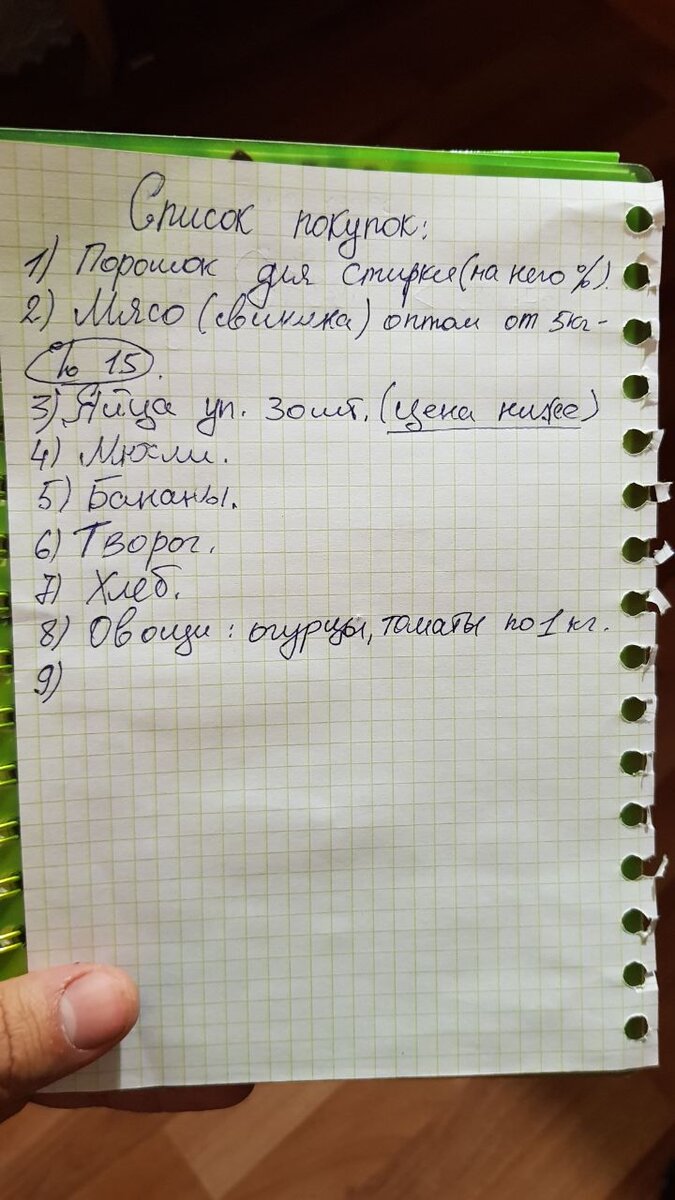 Список покупок:
1) Порошок для стирки (на него %).
2) Мясо (свинина) оптом от 5кг -
% 15.
3) Яйца уп. 30шт. (цена ниже)
4) Мюсли.
5) Бананы.
6) Творог.
7) Хлеб.
8) Овощи: огурцы, томаты по 1 кг.
9)